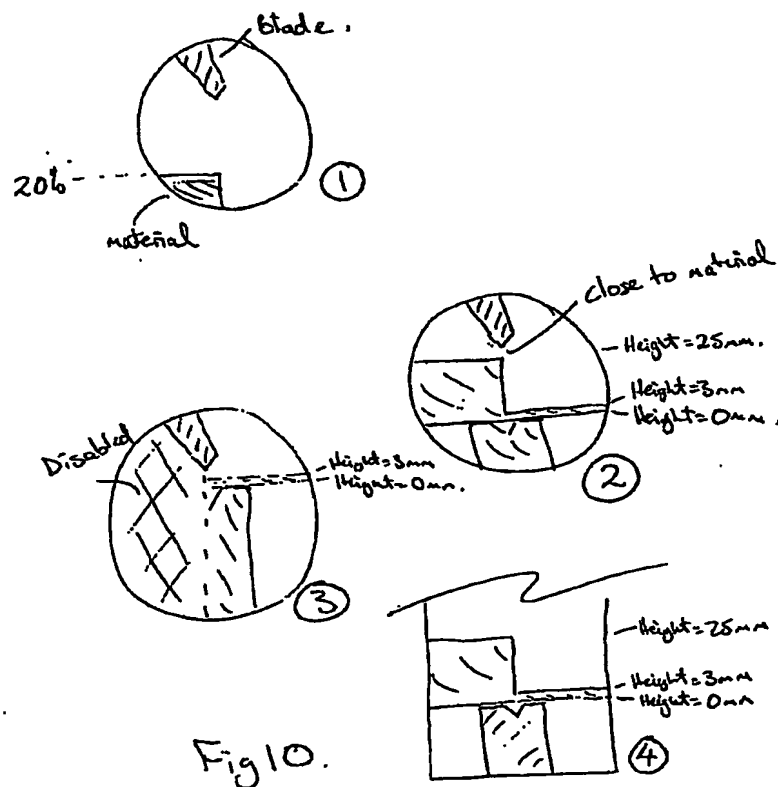 Blade.
20%
material
①
close to material
Height=25mm.
Height=3mm
Height=0mm.
②
Disabled
Height=3mm
Height=0mm.
③
Height=25mm
Height=3mm
Height=0mm
④
Fig 10.